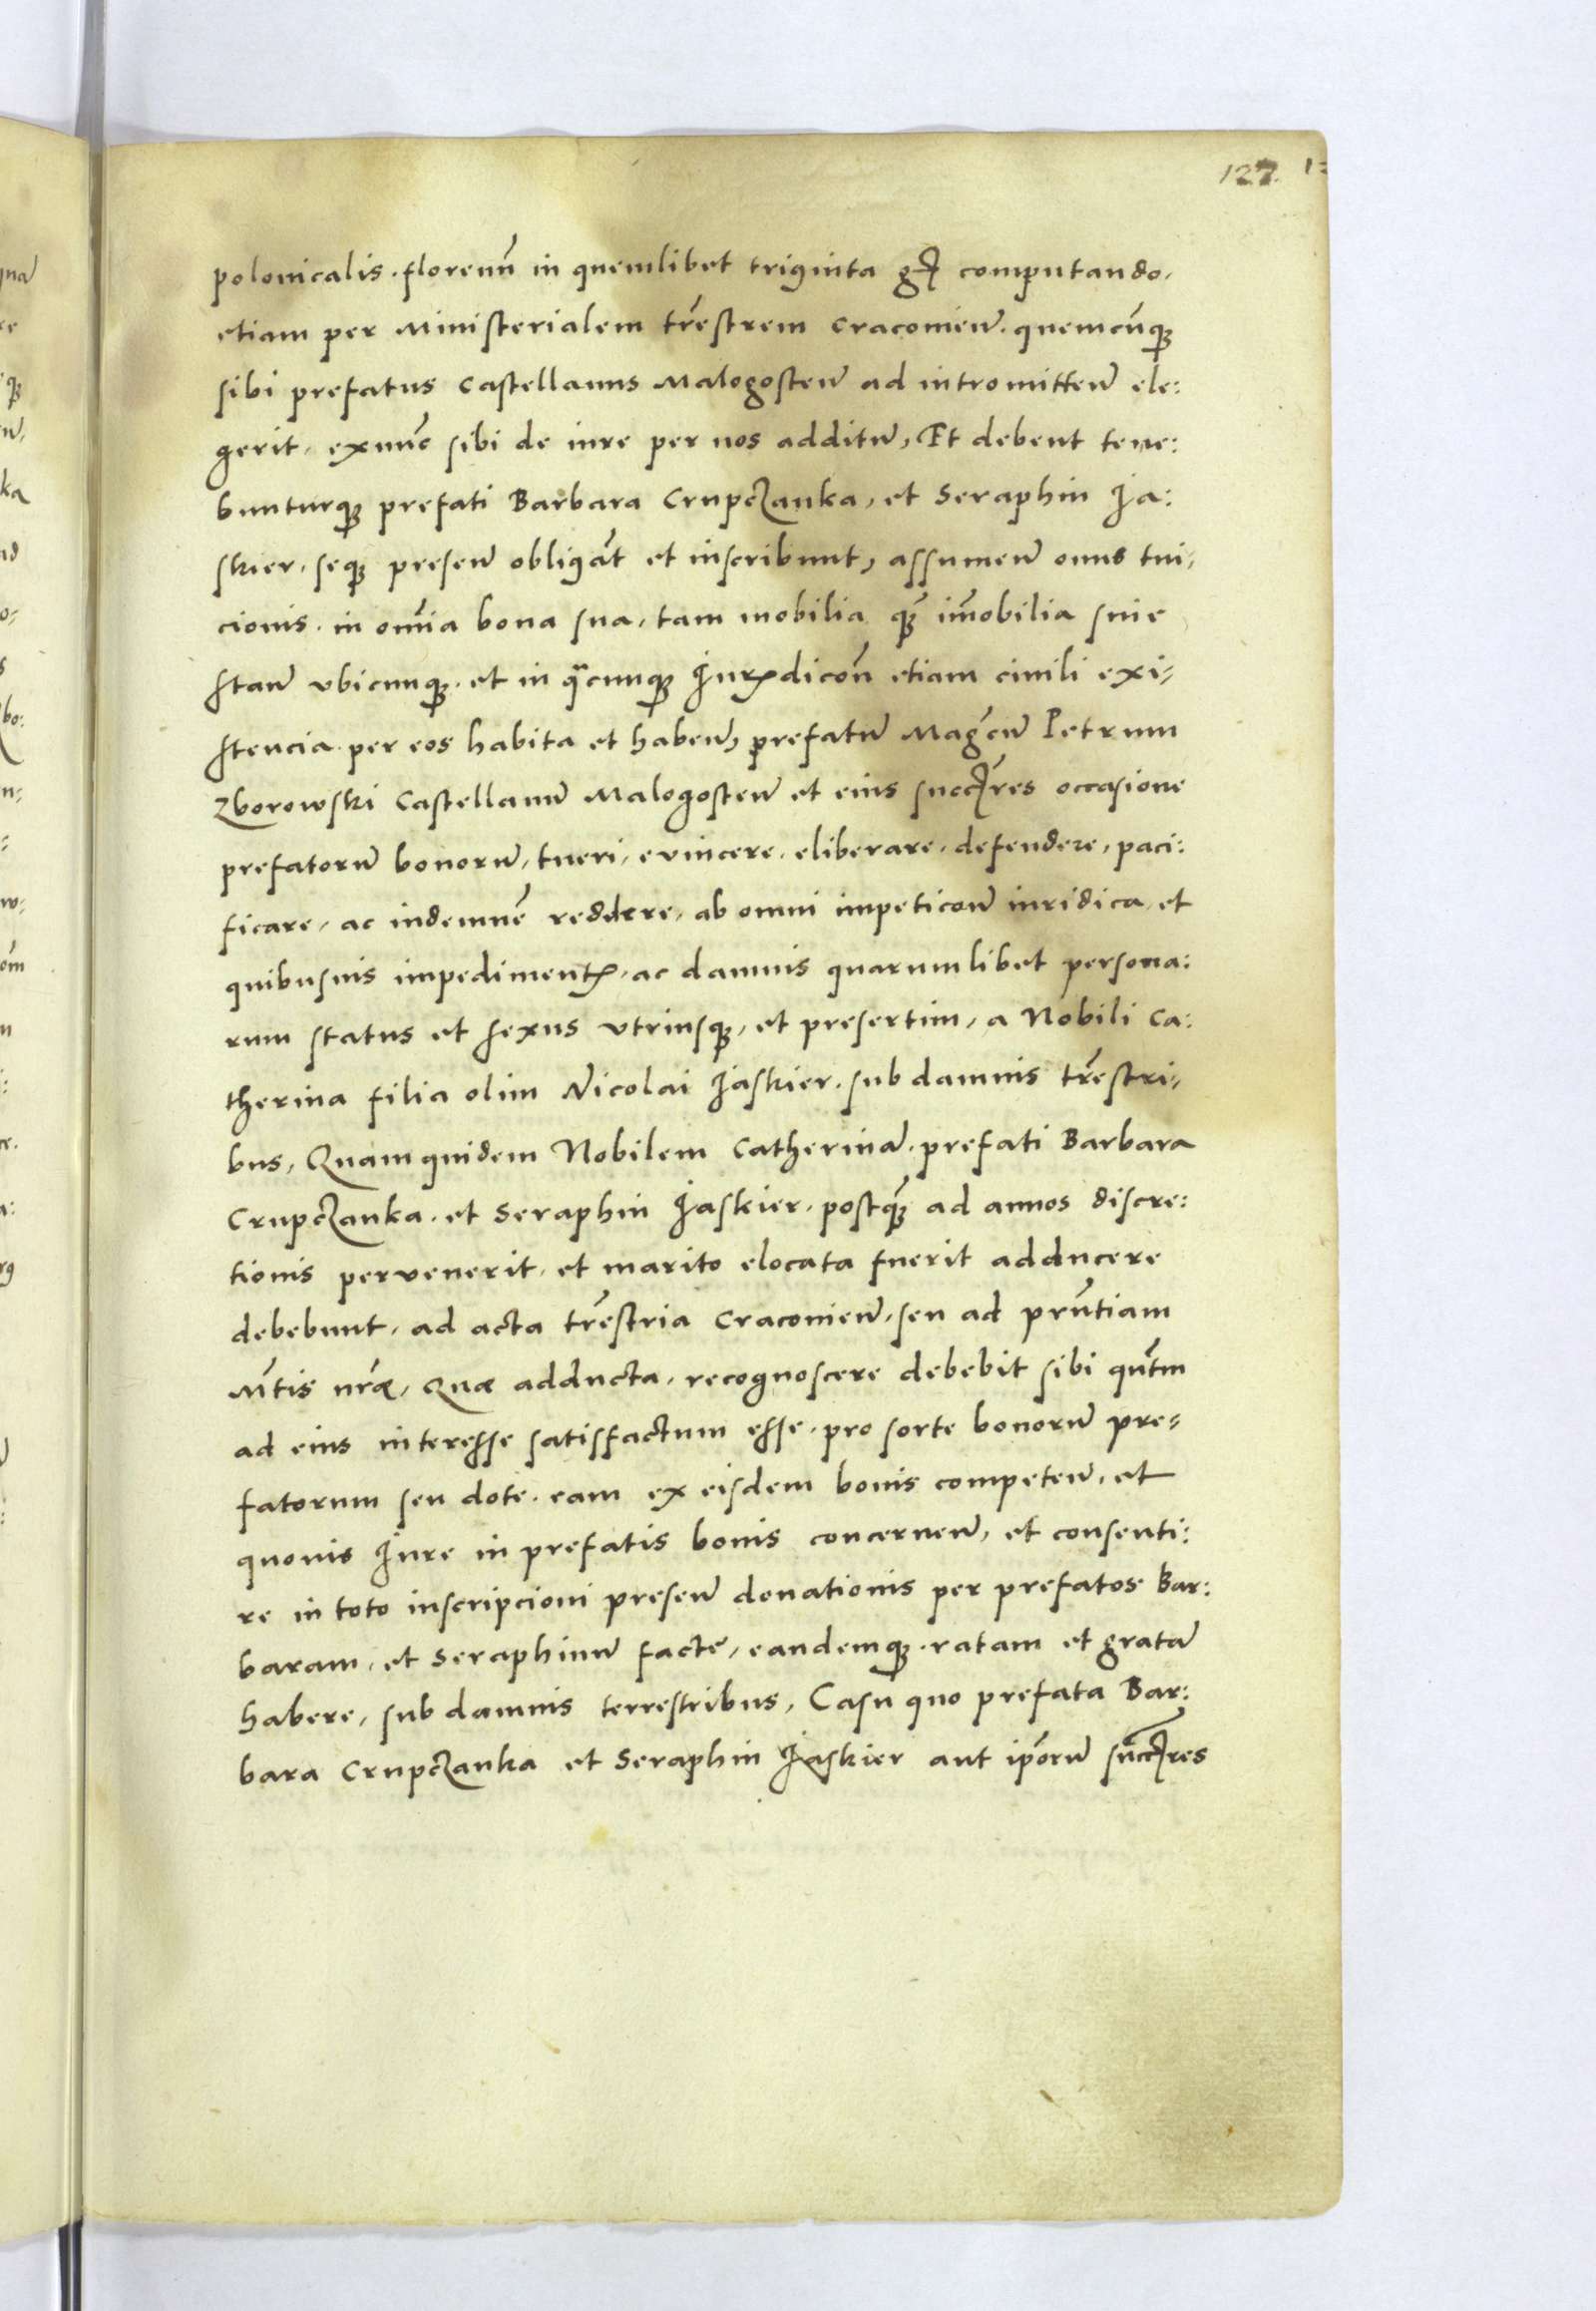 127. 1:
polonicalis. florenū in quemlibet triginta gꝝ computando.
etiam per Ministerialem trēstrem Cracovieñ. quemcūqꝫ
sibi prefatus Castellanus Malogosteñ ad intromitteñ ele:
gerit, exnūc sibi de iure per nos additū, Et debent tene:
bunturqꝫ prefati Barbara Crupczanka, et Seraphin Ja:
skier, seqꝫ preseñ obligāt et inscribunt, assumeñ onus tui,
cionis. in om̄ia bona sua, tam mobilia qꝫ̄ im̄obilia sui e
stañ vbicunqꝫ. et in qᵃcunqꝫ Jurꝭdicōn etiam civili exi,
stencia. per eos habita et habeñ, prefatū Mag̃cū Petrum
Zborowski Castellanū Malogosteñ et eius succꝭres occasione
prefatorū bonorū, tueri, evincere, eliberare, defendere, paci:
ficare, ac indemnē reddere, ab omni impeticoñ iuridica, et
quibusvis impedimentꝭ, ac damnis quarumlibet persona:
rum status et sexus vtriusqꝫ, et presertim, a Nobili Ca:
therina filia olim Nicolai Jaskier. sub damnis trēstri,
bus, Quam quidem Nobilem Catherinā. prefati Barbara
Crupczanka. et Seraphin Jaskier. postqꝫ̄ ad annos discre:
tionis pervenerit, et marito elocata fuerit adducere
debebunt, ad acta trēstria Cracovieñ, seu ad pn̄tiam
Mt̄is nr̄æ, Quæ adducta, recognoscere debebit sibi qūtm
ad eius interesse satisfactum esse, pro sorte bonorū pre,
fatorum seu dote. eam ex eisdem bonis competeñ, et
quovis Jure in prefatis bonis concerneñ, et consenti:
re in toto inscripcioni preseñ donationis per prefatos Bar:
baram, et Seraphinū facte, eandemqꝫ. ratam et gratā
habere, sub damnis terrestribus, Casu quo prefata Bar:
bara Crupczanka et Seraphin Jaskier aut ip̄orū succꝭres